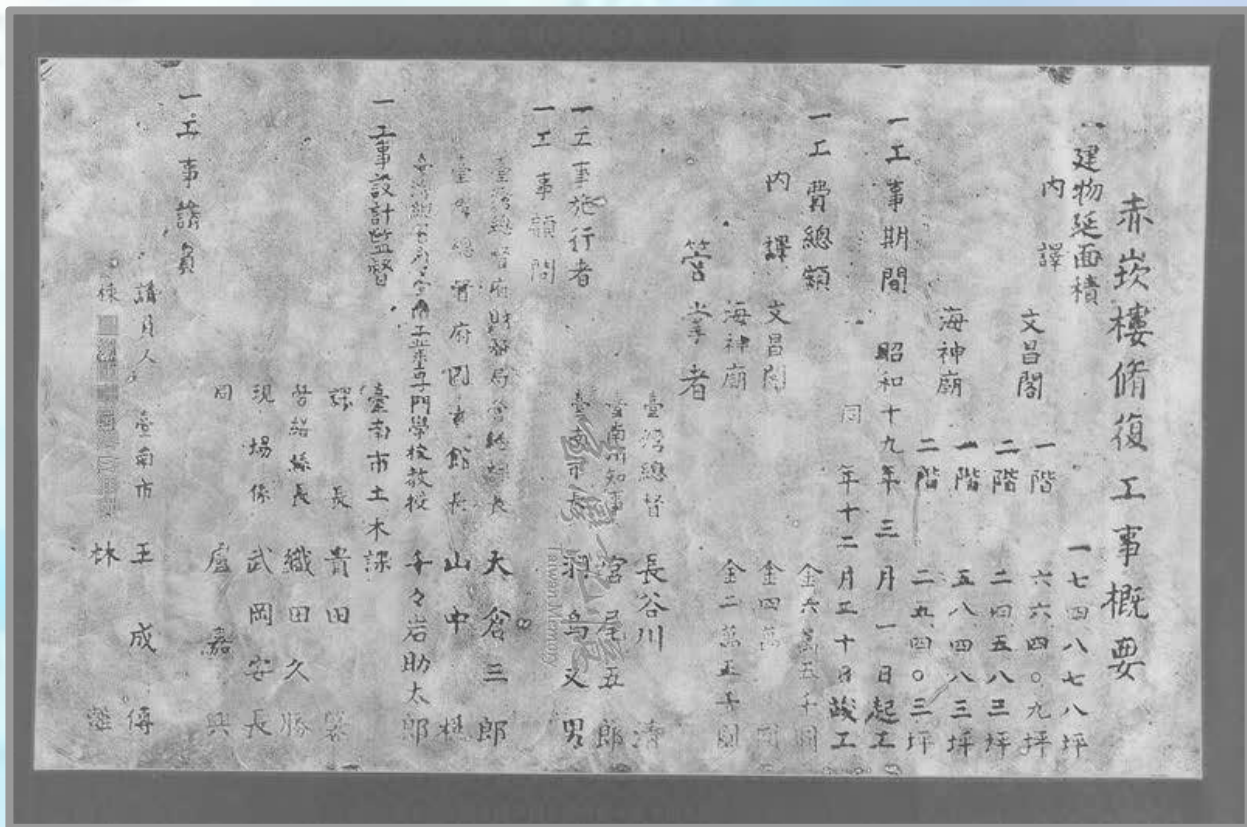 赤崁樓脩復工事概要
一建物延面積 一七四八七八坪
內譯 文昌閣 一階 六六四〇九坪
二階 二四五八三坪
海神廟 一階 五八四八三坪
二階 二五四〇三坪
一工事期間 昭和十九年三月一日起工
同年十二月二十日竣工
一工費總額 金六萬五千圓
內譯 文昌閣 金四萬圓
海神廟 金二萬五千圓
管掌者
臺灣總督 長谷川清
臺南州知事 宮尾五郎
一工事施行者 臺南市長 羽鳥又男
一工事顧問
臺灣總督府財務局營繕課長 大倉三郎
臺灣總督府圖書館長 山中樵
臺灣總督府臺南工業專門學校教授 千々岩助太郎
一工事設計監督 臺南市土木課
課長 貴田
營繕係長 織田久勝
現場係 武岡安長
同 盧嘉興
一工事請負
請負人 臺南市 王成
林
Taiwan Memory